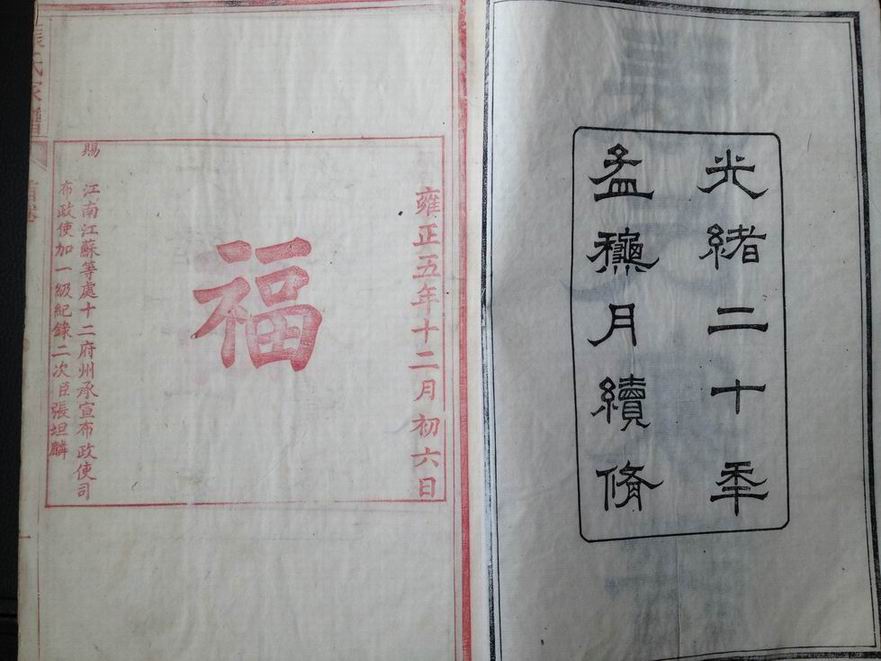 光緒二十季
孟龝月續脩
雍正五年十二月初六日
福
賜
江南江蘇等處十二府州承宣布政使司
布政使加一級紀錄二次臣張坦麟
張氏家譜
首卷